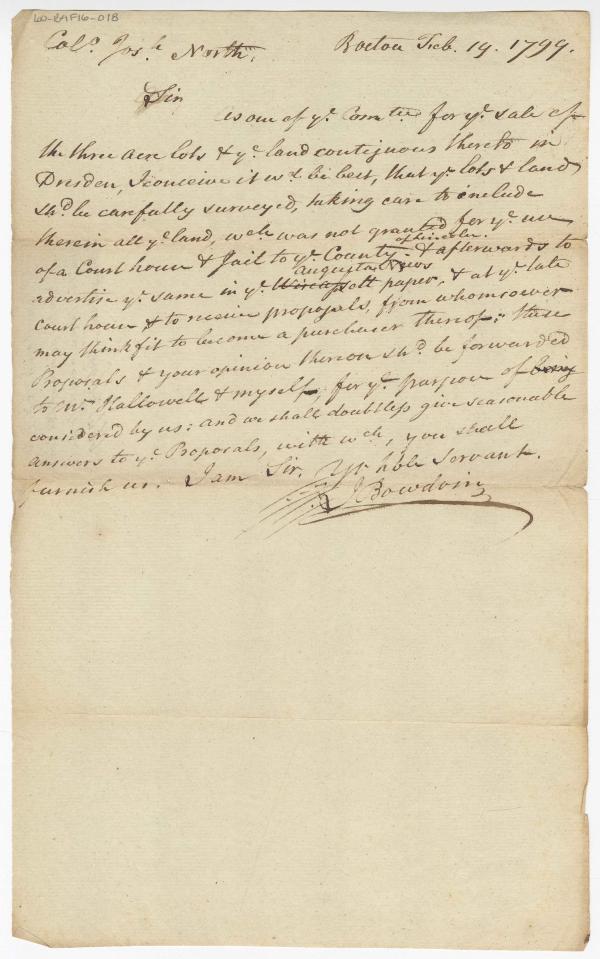 LO-B4F16-018
Colo. Josh North. Boston Feb. 19. 1799.
Sir
as one of ye. Comtee for ye. sale of
the three acre lots & ye. land contiguous thereto in
Dresden, I conceive it wd. be best, that ye. lots & land
shd. be carefully surveyed, taking care to include
therein all ye. land, wch. was not granted for ye. use
of a Court house & Jail to ye. County of Lincoln. & afterwards to
advertise ye. same in ye. Wiscassett augusta & news paper, & at ye. late
Court house, & to receive proposals, from whomsoever
may think fit to become a purchaser thereof: these
Proposals & your opinion thereon shd. be forwarded
to Mr. Hallowell & myself, for ye. purpose of being
considered by us: and we shall doubtless give seasonable
answers to ye. Proposals, with wch., you shall
furnish us. I am Sir, Yr. hble Servant.
J Bowdoin